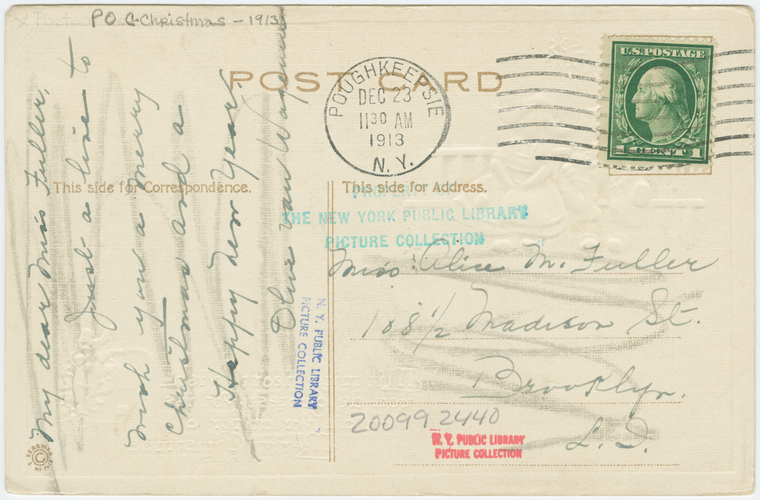 P O C Christmas - 1913
POST CARD
POUGHKEEPSIE
DEC 23
11 30 AM
1913
N. Y.
U.S. POSTAGE
1 CENT 1
This side for Correspondence.
This side for Address.
My dear Miss Fuller,
Just a line to
wish you a Merry
Christmas and a
Happy New Year.
Olive Van
THE NEW YORK PUBLIC LIBRARY
PICTURE COLLECTION
Miss Alice M. Fuller
108 1/2 Madison St.
Brooklyn.
L. I.
N. Y. PUBLIC LIBRARY
PICTURE COLLECTION
200992440
N.Y. PUBLIC LIBRARY
PICTURE COLLECTION